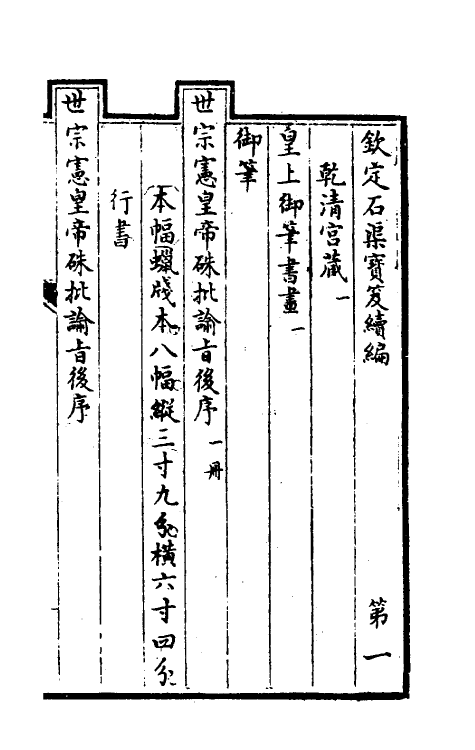 欽定石渠寶笈續編　第一
乾清宮藏一
皇上御筆書畫一
御筆
世宗憲皇帝硃批諭旨後序一冊
本幅蠟牋本八幅縱三寸九分橫六寸四分
行書
世宗憲皇帝硃批諭旨後序